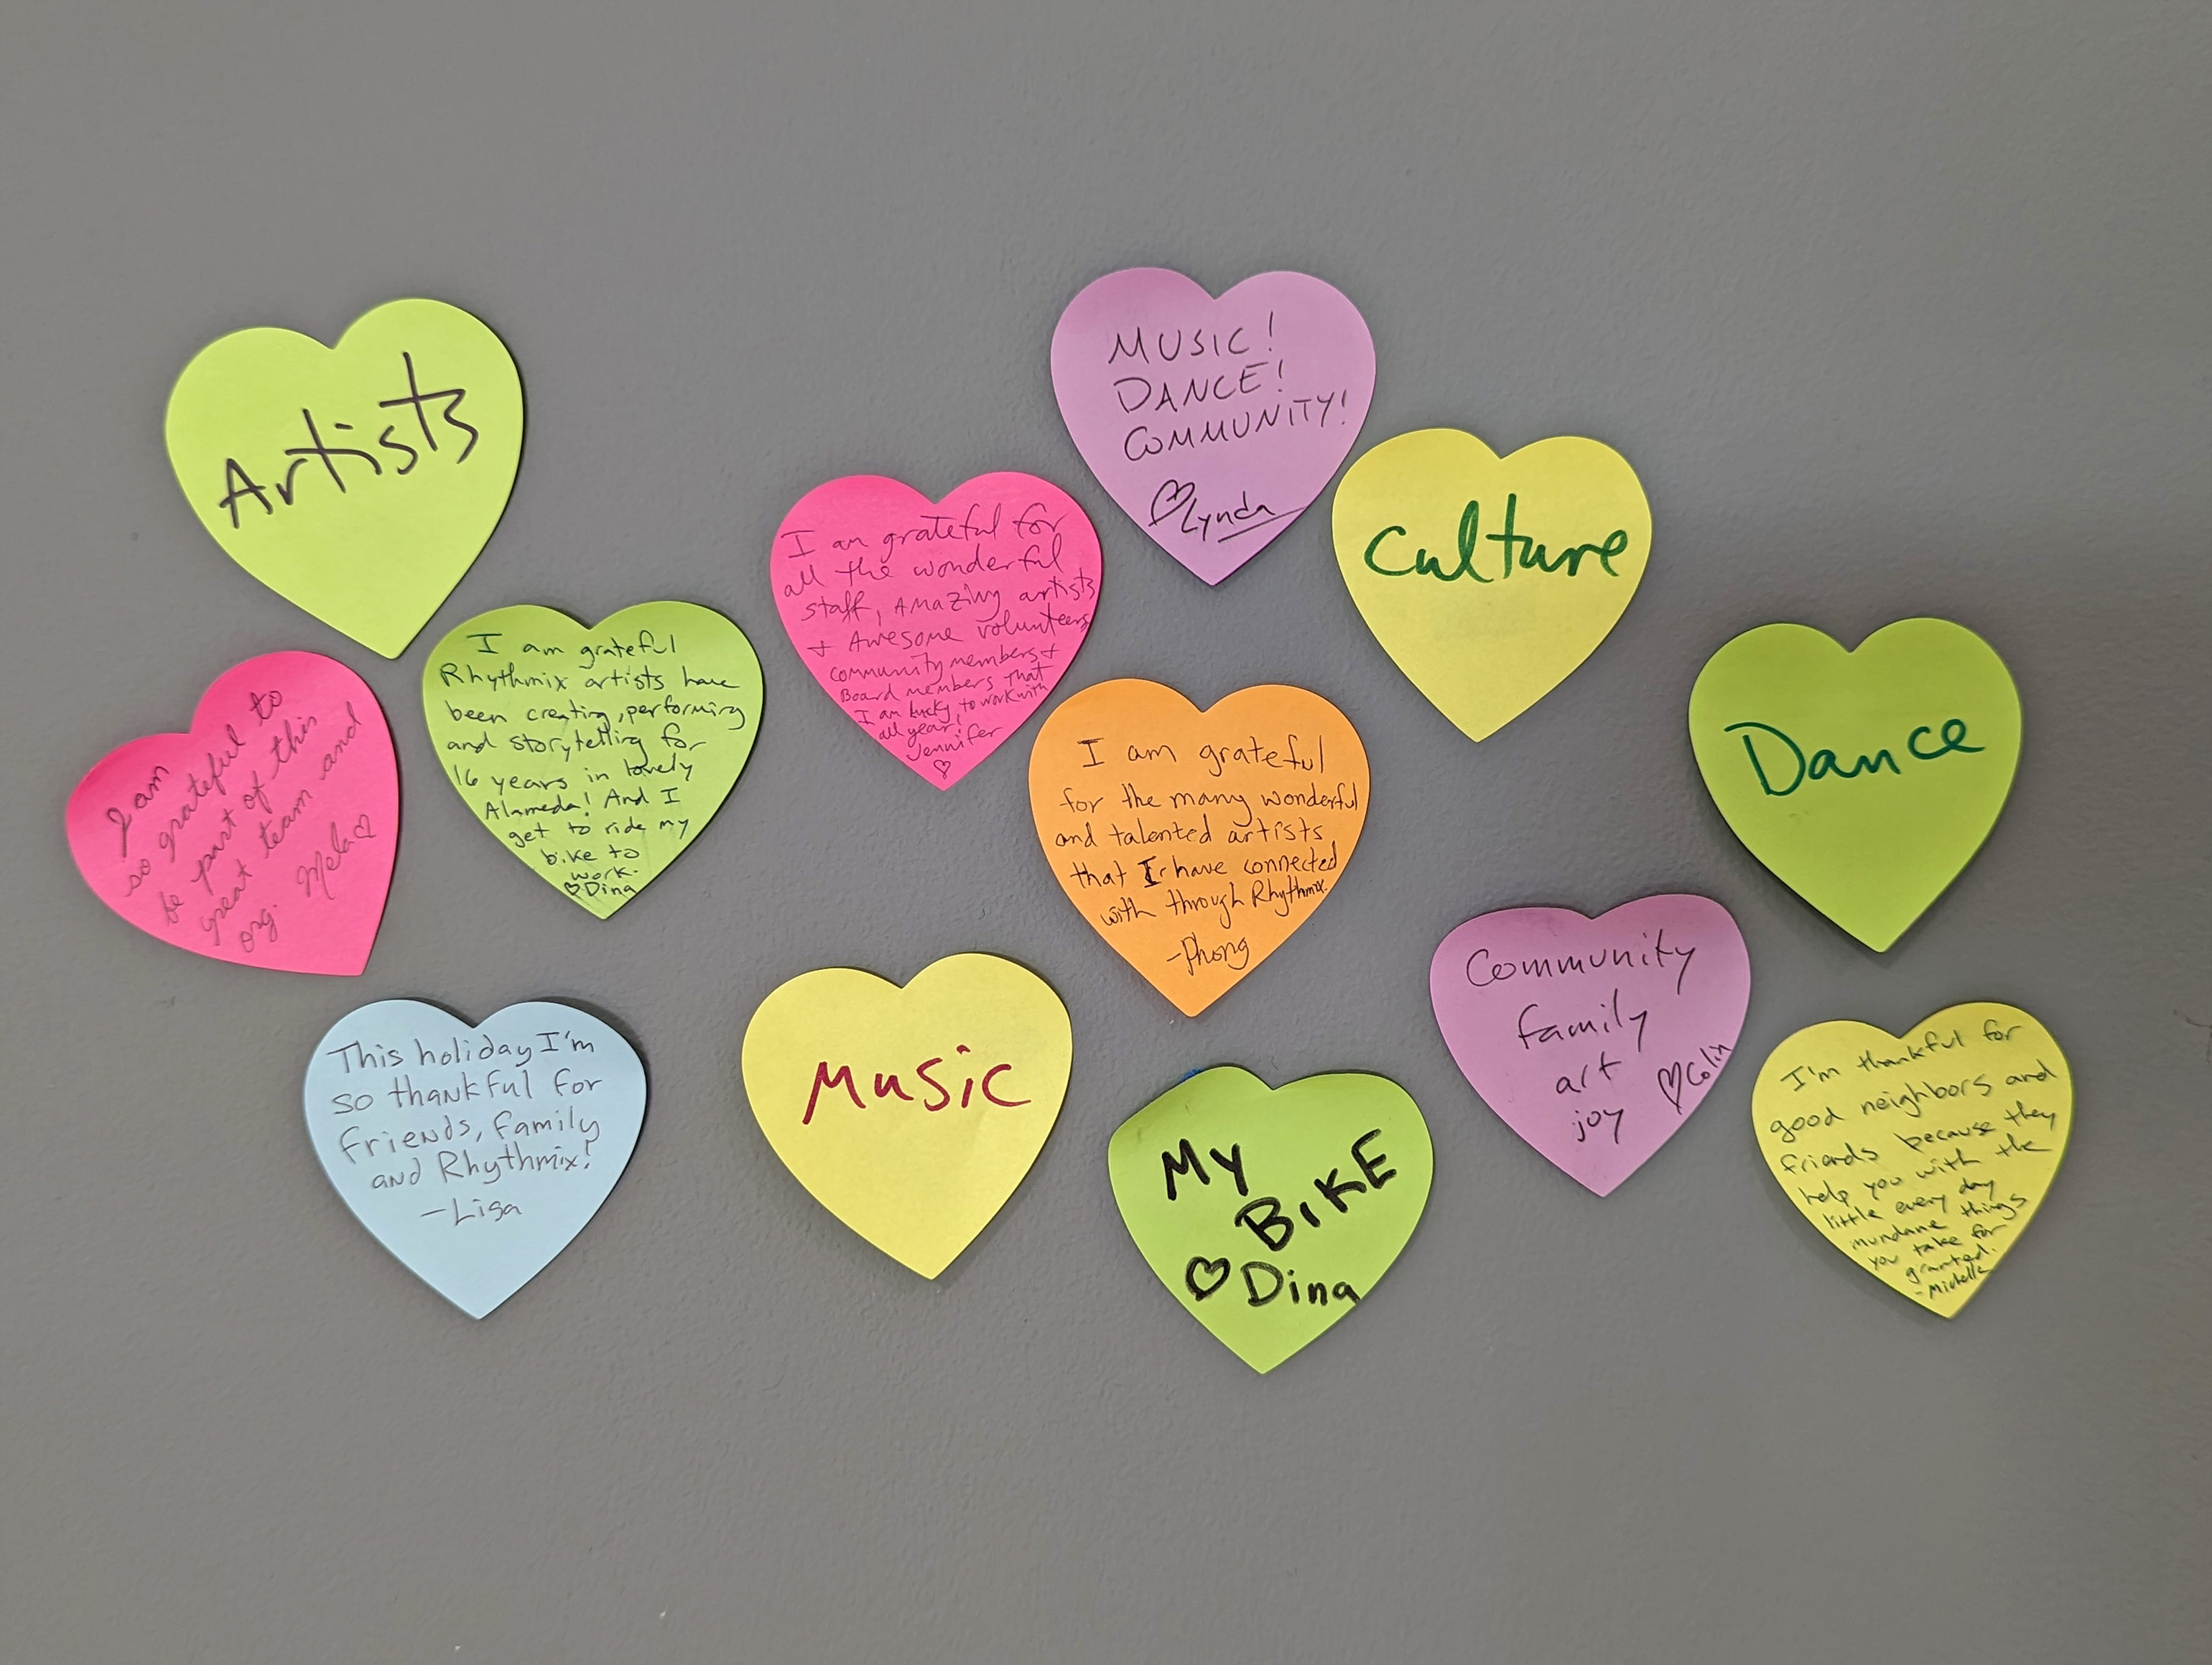 Artists
MUSIC!
DANCE!
COMMUNITY!
♡Lynda
Culture
I am grateful for
all the wonderful
staff, Amazing artists
+ Awesome volunteers,
community members +
Board members that
I am lucky to work with
all year!
Jennifer
♡
I am grateful
Rhythmix artists have
been creating, performing
and storytelling for
16 years in lovely
Alameda! And I
get to ride my
bike to
work.
♡Dina
Dance
I am
so grateful to
be part of this
great team and
org. Mela♡
I am grateful
for the many wonderful
and talented artists
that I have connected
with through Rhythmix.
-Phong
Community
family
art
joy
♡Colin
This holiday I'm
so thankful for
friends, family
and Rhythmix!
-Lisa
Music
My
BIKE
♡Dina
I'm thankful for
good neighbors and
friends because they
help you with the
little every day
mundane things
you take for
granted.
-Michelle